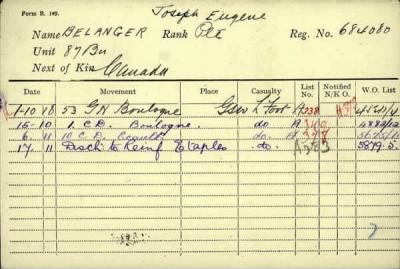 Form B. 103.
Joseph Eugene
Name BELANGER Rank Pte Reg. No. 684080
Unit 87 Bn
Next of Kin Canada
Date Movement Place Casualty List No. Notified N/K O. W.O. List
1-10 18 53 G H Boulogne Gsw L Foot A
15-10 1. C.D. Boulogne. do A 4882
6. 11 C.D. do. A
17. 11 Disch to Reinf Etaples do. A383 5879.5